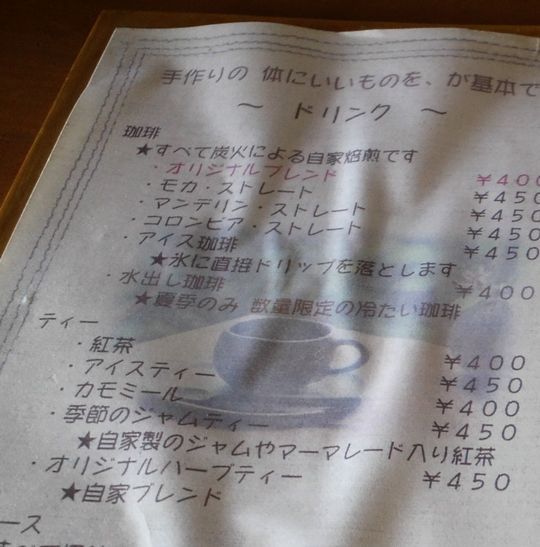 手作りの 体にいいものを、が基本で
～ ドリンク ～
珈琲
★すべて炭火による自家焙煎です
・オリジナルブレンド ￥400
・モカ・ストレート ￥450
・マンデリン・ストレート ￥450
・コロンビア・ストレート ￥450
・アイス珈琲 ￥450
★氷に直接ドリップを落とします
・水出し珈琲 ￥400
★夏季のみ 数量限定の冷たい珈琲
ティー
・紅茶 ￥400
・アイスティー ￥450
・カモミール ￥400
・季節のジャムティー ￥450
★自家製のジャムやマーマレード入り紅茶
・オリジナルハーブティー ￥450
★自家ブレンド
ース